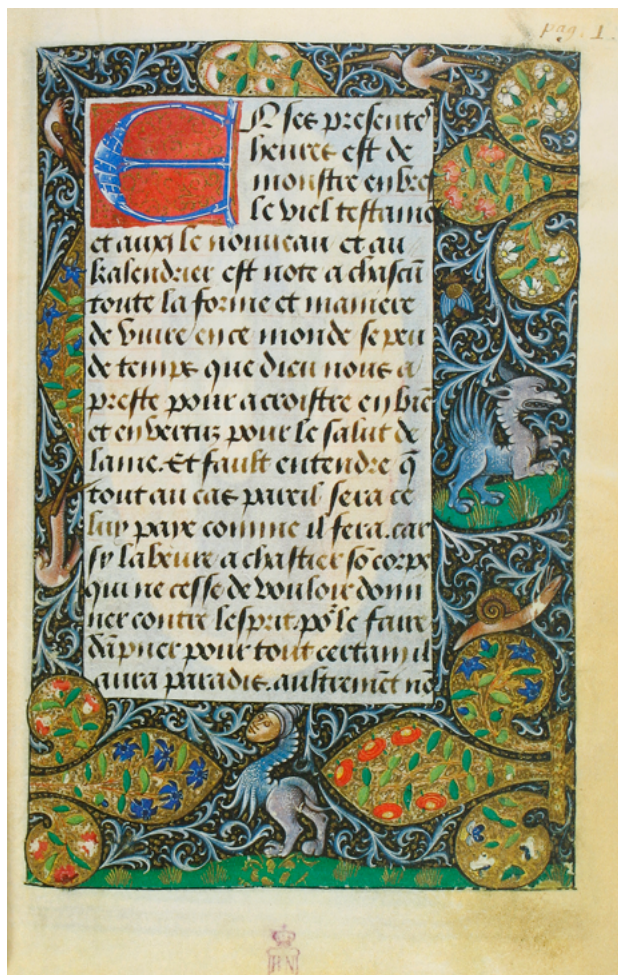 pag. 1.
EN ses presentes
heures est de
monstre en bref
le viel testame
et auxi le nouveau et au
kalendrier est note a chascū
toute la forme et maniere
de vivre en ce monde se peu
de temps que dieu nous a
preste pour acroistre en biē
et en vertuz pour le salut de
lame. Et fault entendre q̄
tout au cas pareil sera ce
luy paye comme il fera. car
sy labeure a chastier sō corps
qui ne cesse de vouloir domi
ner contre lesprit. po᷑ le faire
dāpner pour tout certain il
aura paradis. austremēt nō
BN